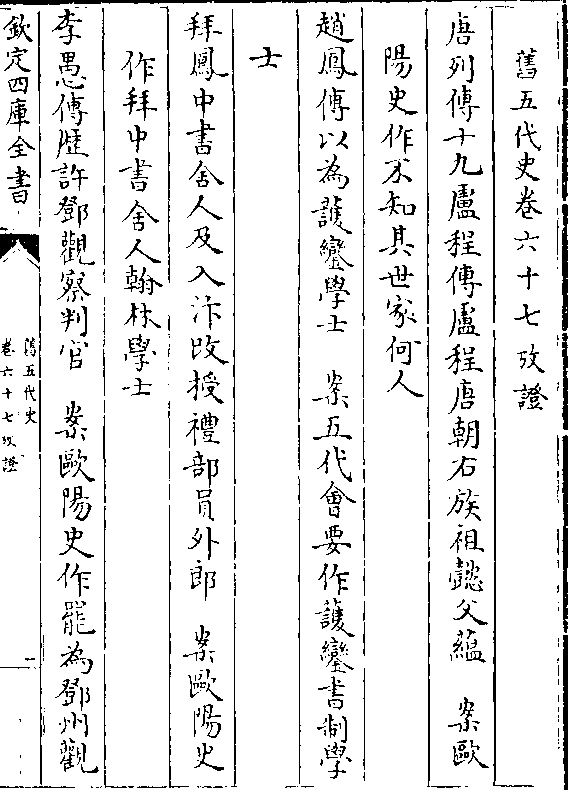 舊五代史卷六十七攷證
唐列傳十九盧程傳盧程唐朝右族祖懿父蘊　案歐
陽史作不知其世家何人
趙鳳傳以為護鑾學士　案五代會要作護鑾書制學
士
拜鳳中書舍人及入汴改授禮部員外郎　案歐陽史
作拜中書舍人翰林學士
李愚傳歷許鄧觀察判官　案歐陽史作罷為鄧州觀
欽定四庫全書
舊五代史
卷六十七攷證
一